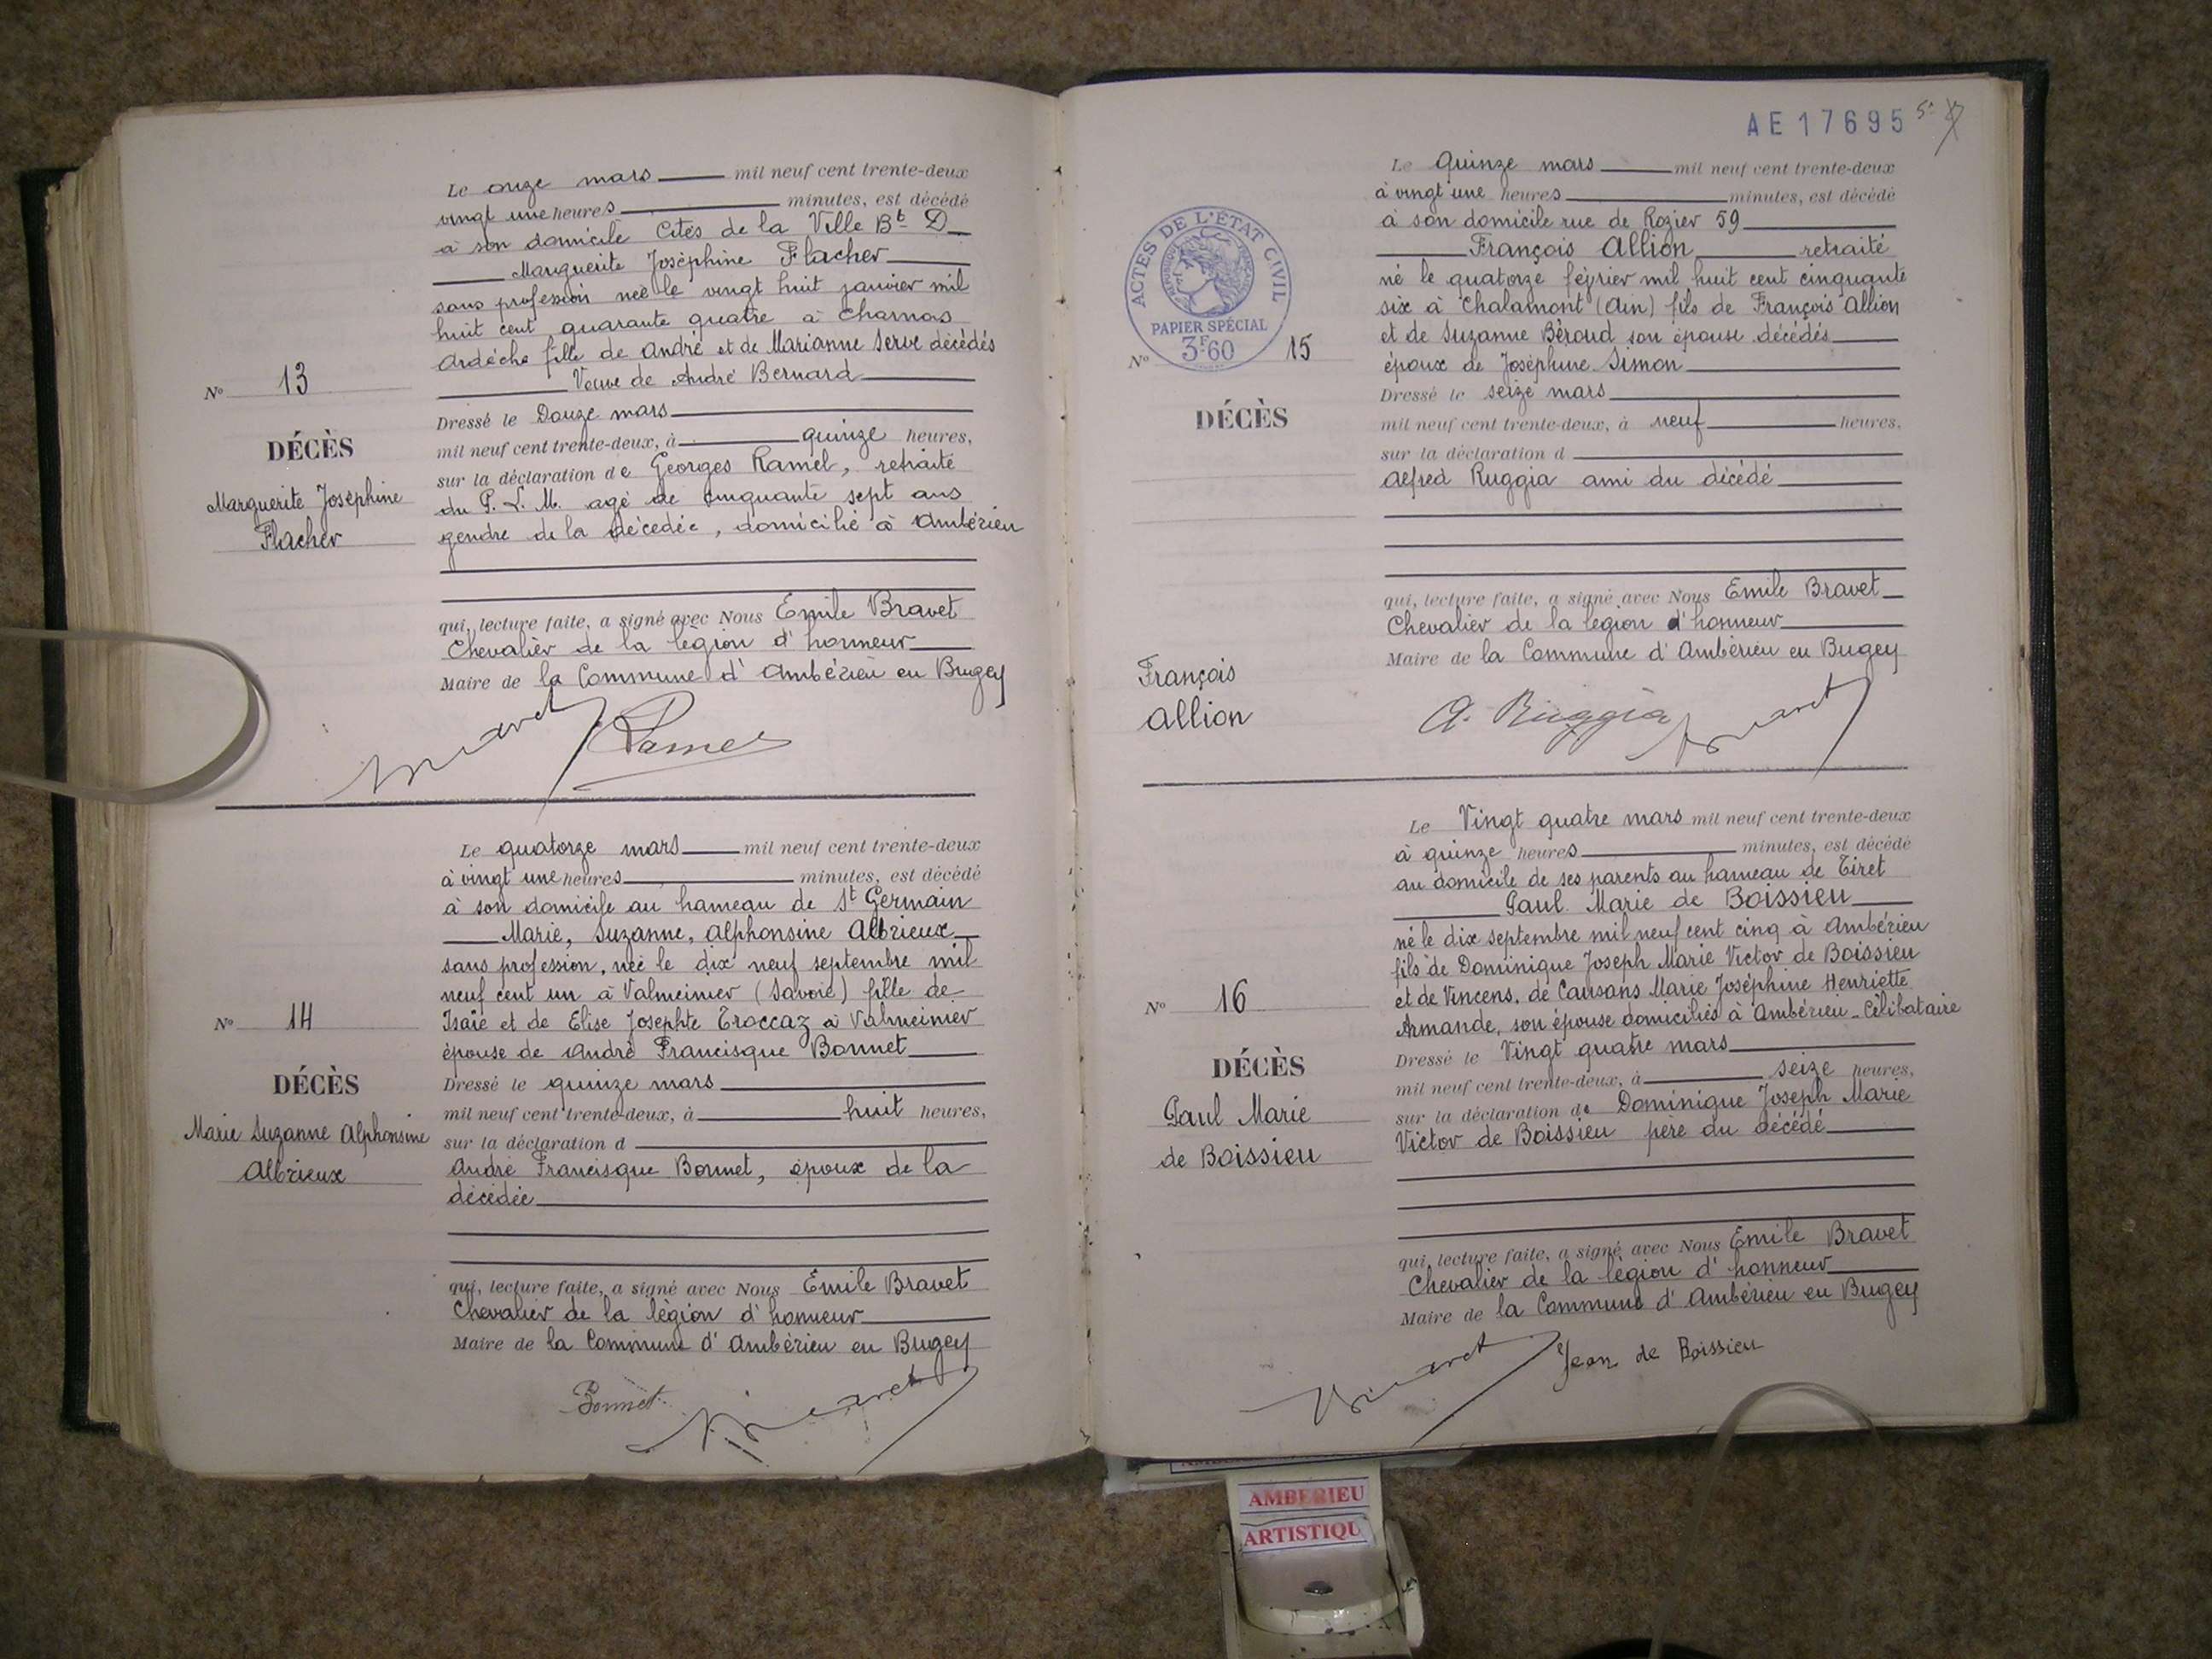 Le onze mars mil neuf cent trente-deux
vingt une heures minutes, est décédé
à son domicile Cités de la Ville Bt D
Marguerite Joséphine Flacher
sans profession née le vingt huit janvier mil
huit cent quarante quatre à Charnas
Ardèche fille de André et de Marianne Serve décédés
Veuve de André Bernard
Nº 13
DÉCÈS
Marguerite Joséphine
Flacher
Dressé le Douze mars
mil neuf cent trente-deux, à quinze heures,
sur la déclaration de Georges Ramel, retraité
du P. L. M. agé de cinquante sept ans
gendre de la décédée, domicilié à Ambérieu
qui, lecture faite, a signé avec Nous Emile Bravet
Chevalier de la légion d'honneur
Maire de la Commune d'Ambérieu en Bugey
Le quatorze mars mil neuf cent trente-deux
à vingt une heures minutes, est décédé
à son domicile au hameau de St Germain
Marie, Suzanne, Alphonsine Albrieux
sans profession, née le dix neuf septembre mil
neuf cent un à Valmeinier (Savoie) fille de
Isaïe et de Elise Josephte Troccaz à Valmeinier
épouse de André Francisque Bonnet
Nº 14
DÉCÈS
Marie Suzanne Alphonsine
Albrieux
Dressé le quinze mars
mil neuf cent trente-deux, à huit heures,
sur la déclaration d
André Francisque Bonnet, époux de la
décédée
qui, lecture faite, a signé avec Nous Emile Bravet
Chevalier de la légion d'honneur
Maire de la Commune d'Ambérieu en Bugey
Bonnet
AE17695
Le Quinze mars mil neuf cent trente-deux
à vingt une heures minutes, est décédé
à son domicile rue de Rozier 59
François Allion retraité
né le quatorze février mil huit cent cinquante
six à Chalamont (Ain) fils de François Allion
et de Suzanne Béroud son épouse décédés
époux de Joséphine Simon
ACTES DE L'ÉTAT CIVIL
PAPIER SPÉCIAL
3F60
Nº 15
DÉCÈS
François
Allion
Dressé le seize mars
mil neuf cent trente-deux, à neuf heures,
sur la déclaration d
Alfred Ruggia ami du décédé
qui, lecture faite, a signé avec Nous Emile Bravet
Chevalier de la légion d'honneur
Maire de la Commune d'Ambérieu en Bugey
A. Ruggia
Le Vingt quatre mars mil neuf cent trente-deux
à quinze heures minutes, est décédé
au domicile de ses parents au hameau de Tiret
Paul Marie de Boissieu
né le dix septembre mil neuf cent cinq à Ambérieu
fils de Dominique Joseph Marie Victor de Boissieu
et de Vincens, de Causans Marie Joséphine Henriette
Armande, son épouse domiciliés à Ambérieu - Célibataire
Nº 16
DÉCÈS
Paul Marie
de Boissieu
Dressé le Vingt quatre mars
mil neuf cent trente-deux, à seize heures,
sur la déclaration de Dominique Joseph Marie
Victor de Boissieu père du décédé
qui, lecture faite, a signé avec Nous Emile Bravet
Chevalier de la légion d'honneur
Maire de la Commune d'Ambérieu en Bugey
Jean de Boissieu
AMBERIEU
ARTISTIQU